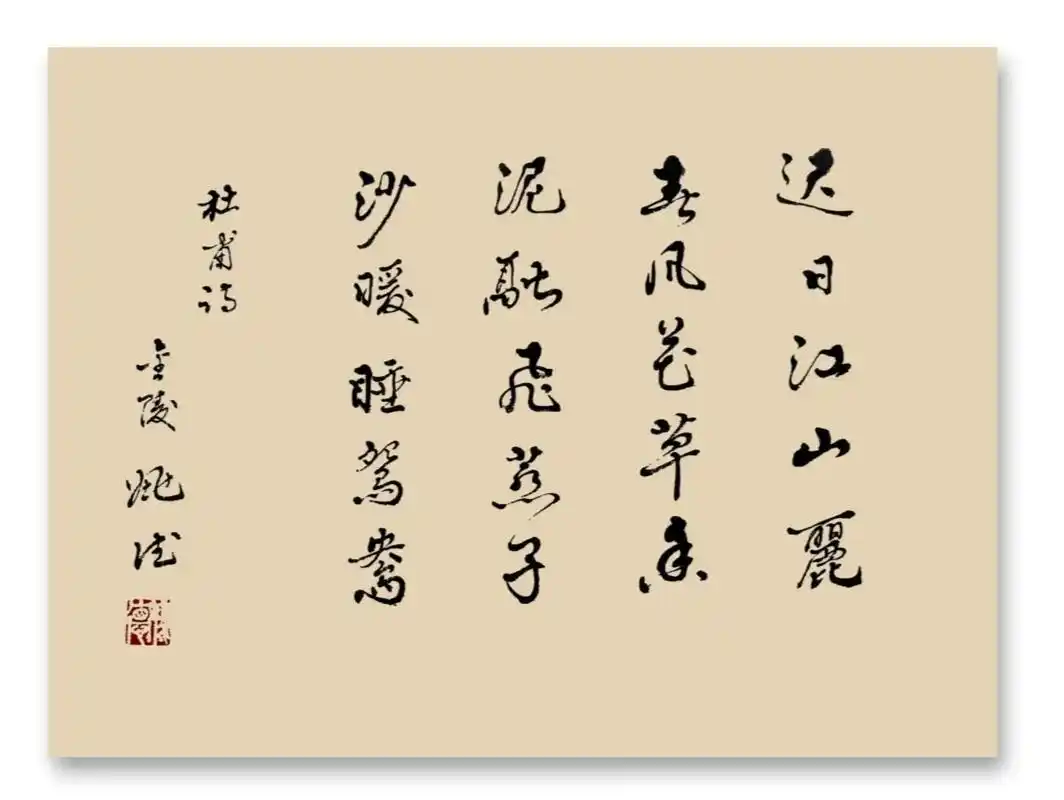 迟日江山麗
春风花草香
泥融飛燕子
沙暖睡鴛鴦
杜甫诗
金陵